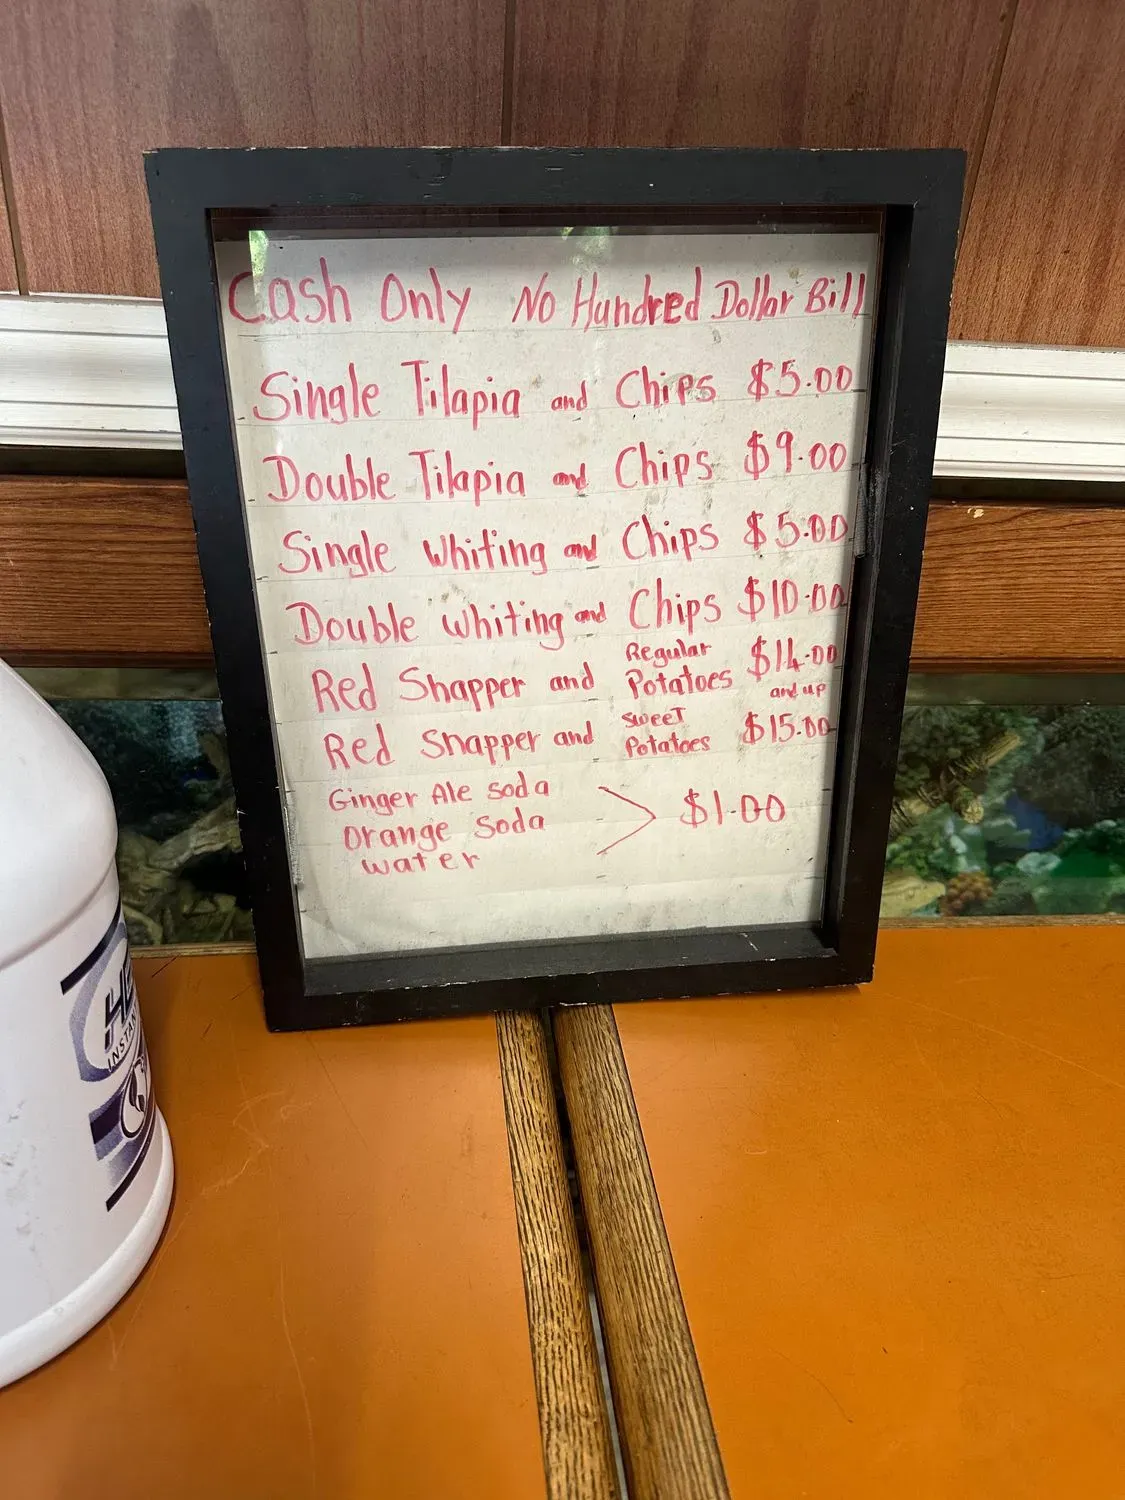 Cash Only No Hundred Dollar Bill
Single Tilapia and Chips $5.00
Double Tilapia and Chips $9.00
Single Whiting and Chips $5.00
Double Whiting and Chips $10.00
Red Snapper and Regular Potatoes $14.00 and up
Red Snapper and Sweet Potatoes $15.00
Ginger Ale Soda
Orange Soda > $1.00
water